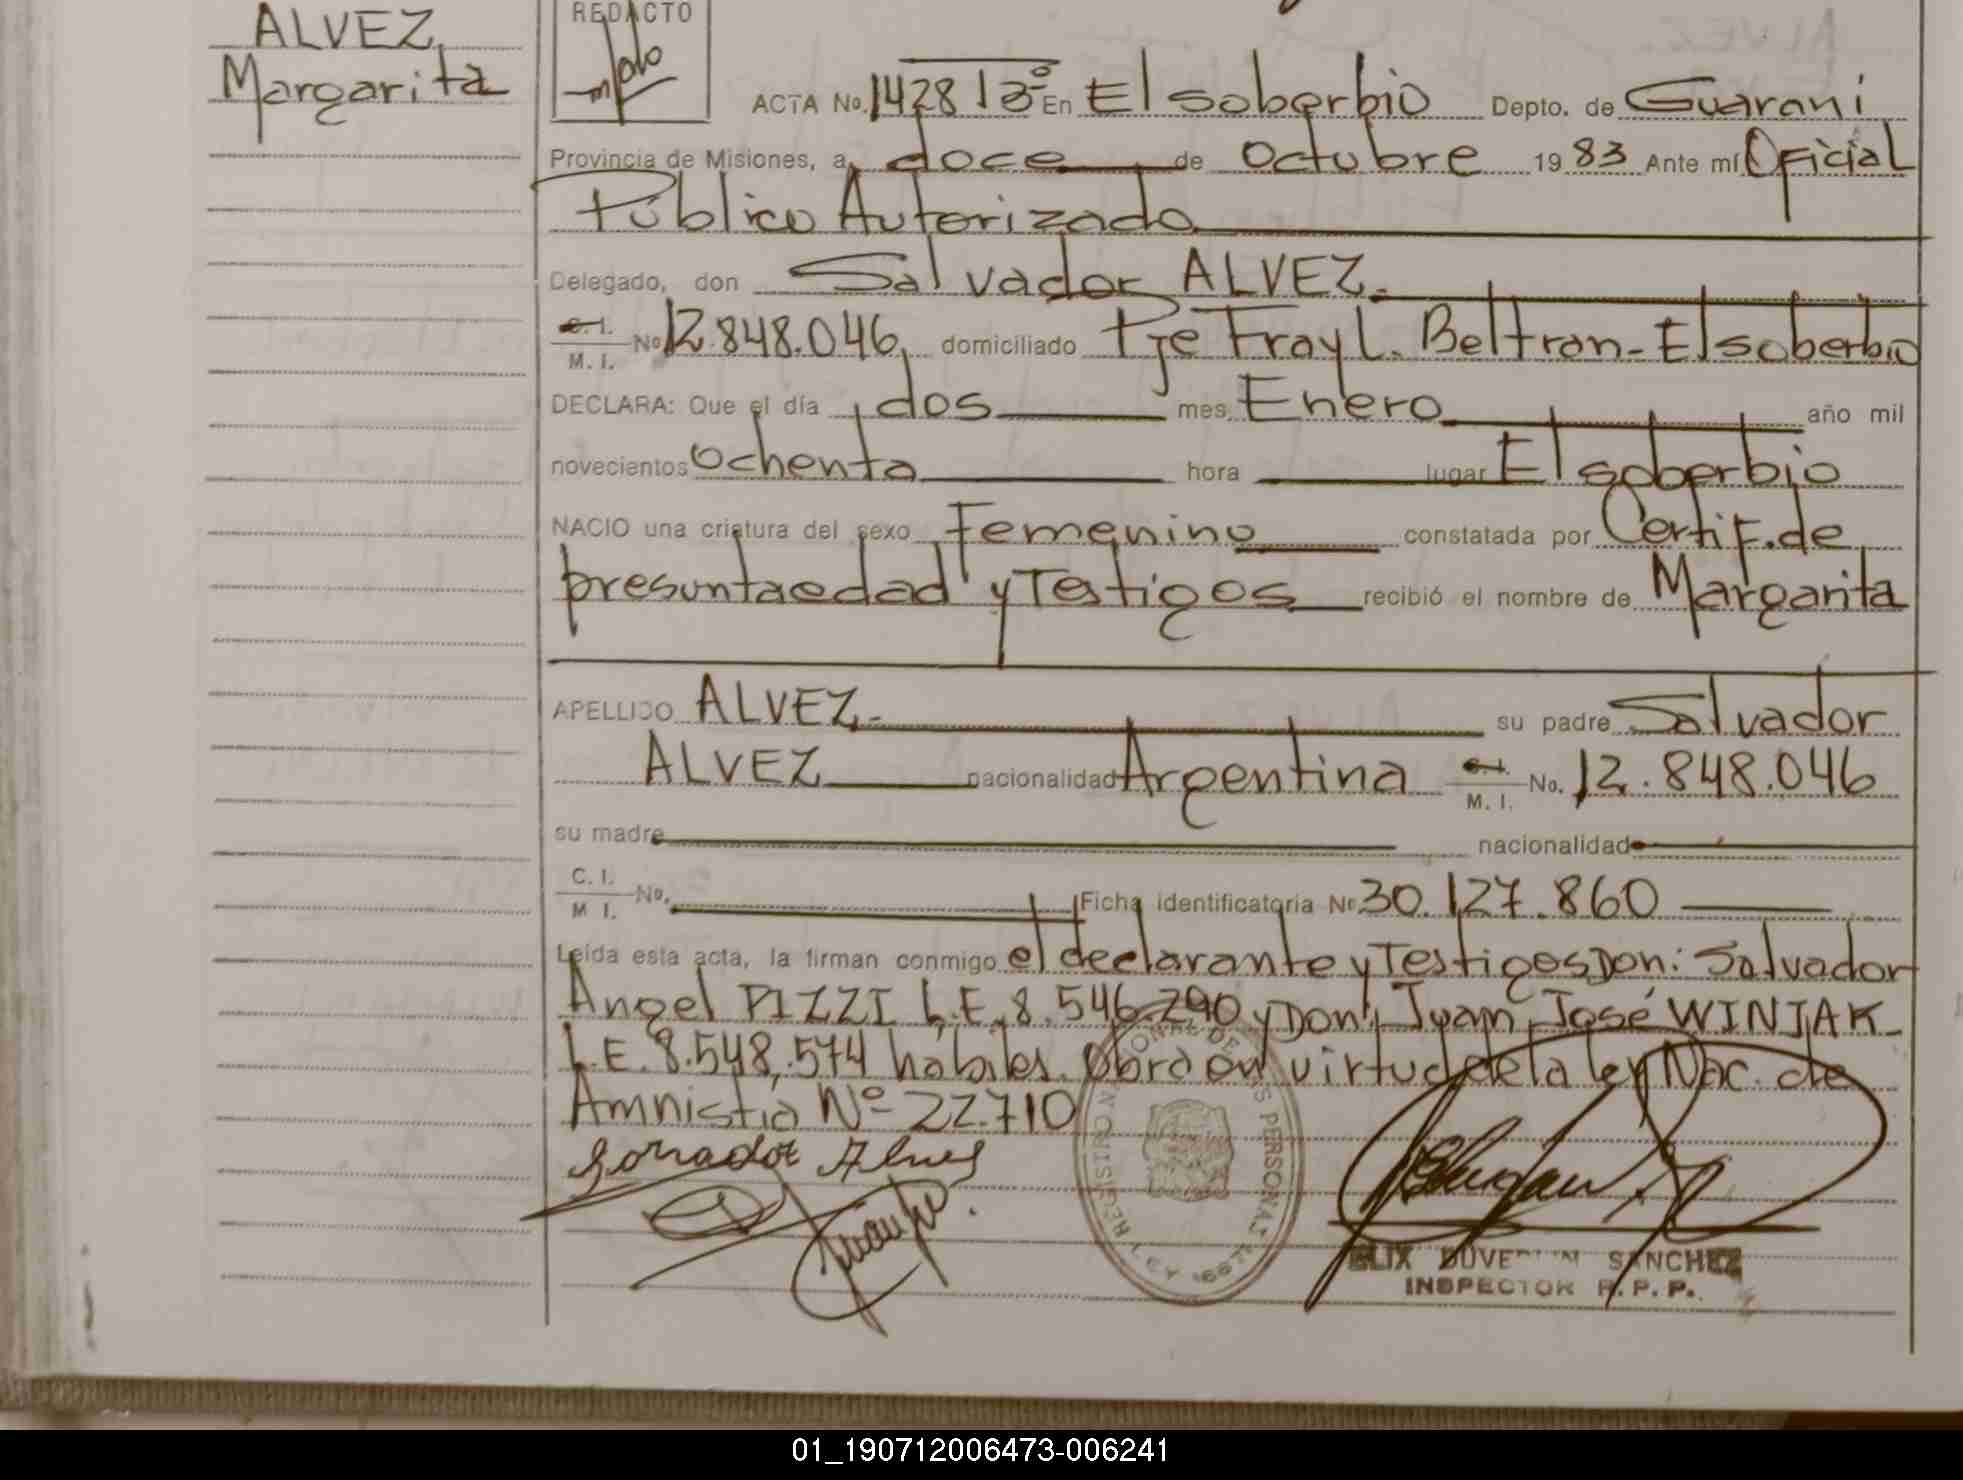 ALVEZ,
Margarita
REDACTO
ACTA No. 1428 En El soberbio Depto. de Guaraní
Provincia de Misiones, a doce de Octubre 1983 Ante mí Oficial
Público Autorizado
Delegado, don Salvador ALVEZ.
C. I.
M. I. No 12.848.046, domiciliado Pje Fray L. Beltran - El soberbio
DECLARA: Que el día dos mes Enero año mil
novecientos Ochenta hora lugar El soberbio
NACIO una criatura del sexo Femenino constatada por Certif. de
presunta edad y Testigos recibió el nombre de Margarita
APELLIDO ALVEZ su padre Salvador
ALVEZ nacionalidad Argentina C. I.
M. I. No. 12.848.046
su madre nacionalidad
C. I.
M I. No. Ficha identificatoria No 30.127.860
Leida esta acta, la firman conmigo el declarante y Testigos Don: Salvador
Angel PIZZI L.E. 8.546.290 y Don Juan José WINIAK
L.E. 8.548.574 hábiles. Obro en virtud de la ley Nac. de
Amnistia Nº 22.710
SANCHEZ
INSPECTOR R. P. P.
01_190712006473-006241